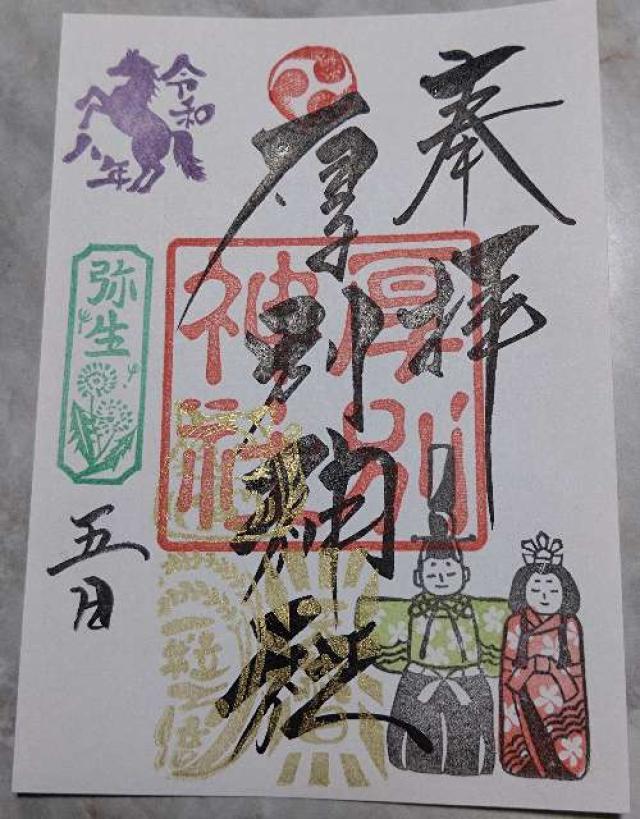 奉拝
厚別神社
厚別
神社
令和
八年
弥生
五日
一粒万倍